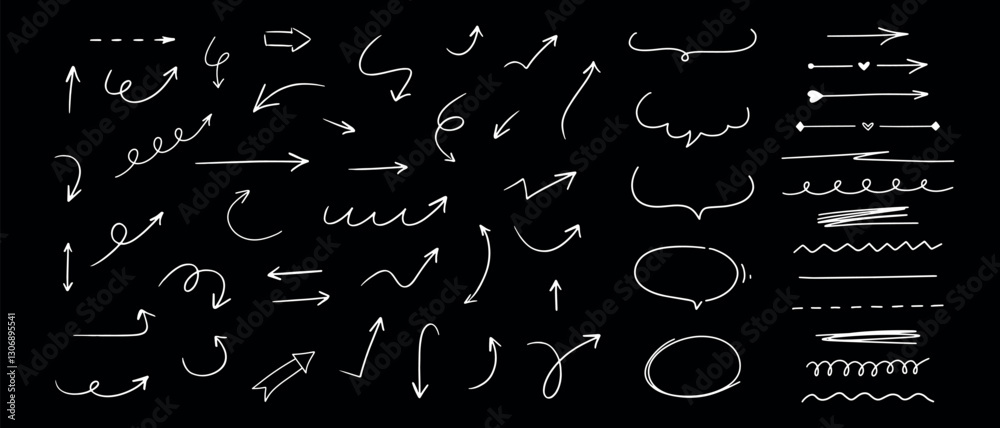 Adobe Stock | #1306895541